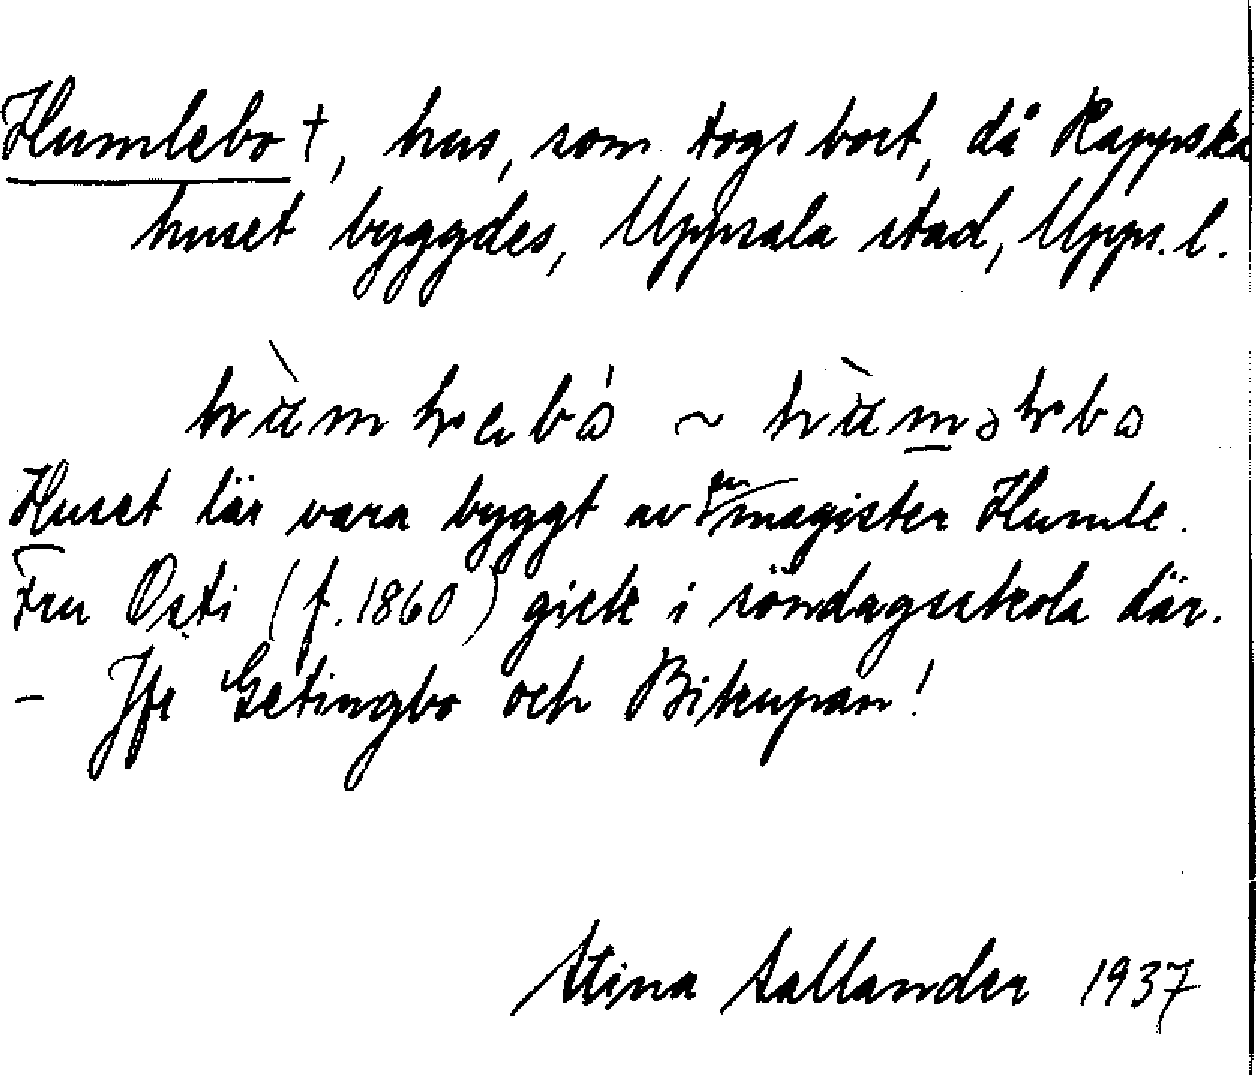 Humlebo †, hus, som togs bort, då Rappska
huset byggdes, Uppsala stad, Uppr. l.
Huset lär vara byggt av en magister Humle.
Fru Osti (f. 1860) gick i söndagsskola där.
- Jfr Getingbo och Bikupan!
Stina Sallander 1937